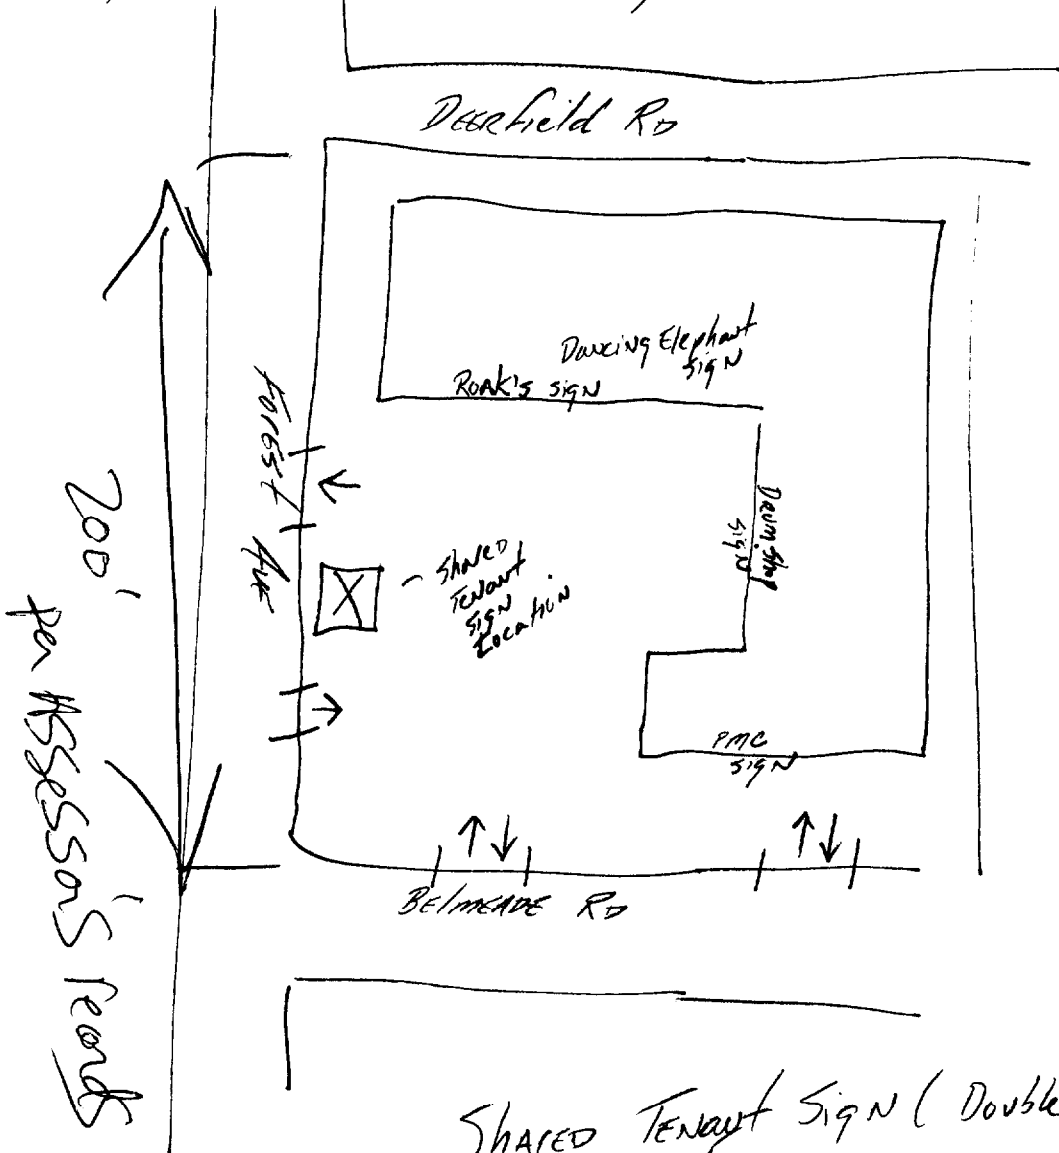 Deerfield RD
Dancing Elephant
Sign
Roak's sign
Forest Ave
Drum Shop
sign
Shared
Tenant
Sign
Location
200'
per Assessor's records
PMC
sign
Belmeade RD
Shared Tenant Sign ( Double